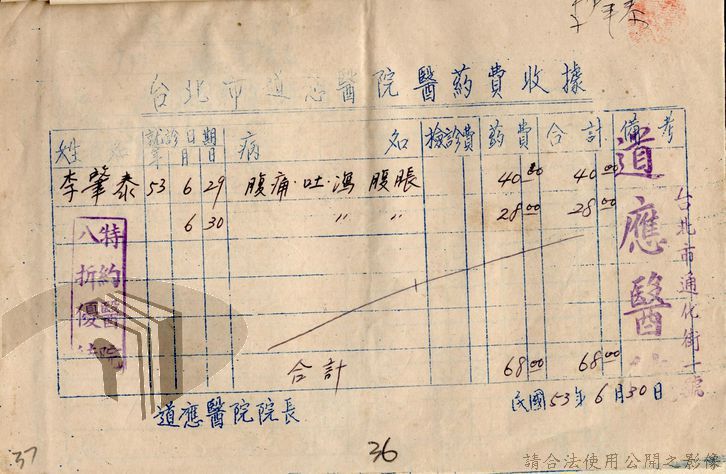 台北市道應醫院醫药費收據
姓名 就診日期 年 月 日 病名 檢診費 药費 合計 備考
李肇泰 53 6 29 腹痛·吐·瀉 腹脹 40 00 40 00
6 30 〃 〃 28 00 28 00
合計 68 00 68 00
特約醫院
八折優待
道應醫
台北市通化街一號
道應醫院院長
民國53年6月30日
37
36
請合法使用公開之影像